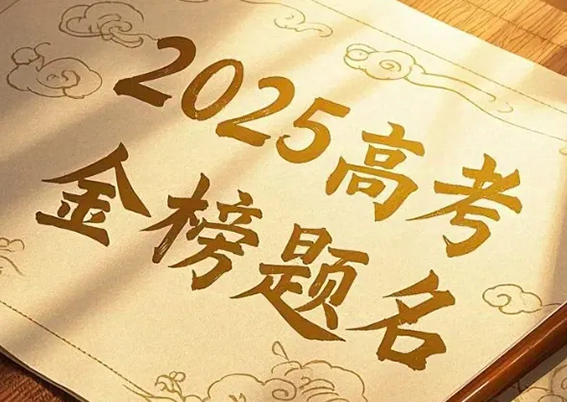 2025高考
金榜题名